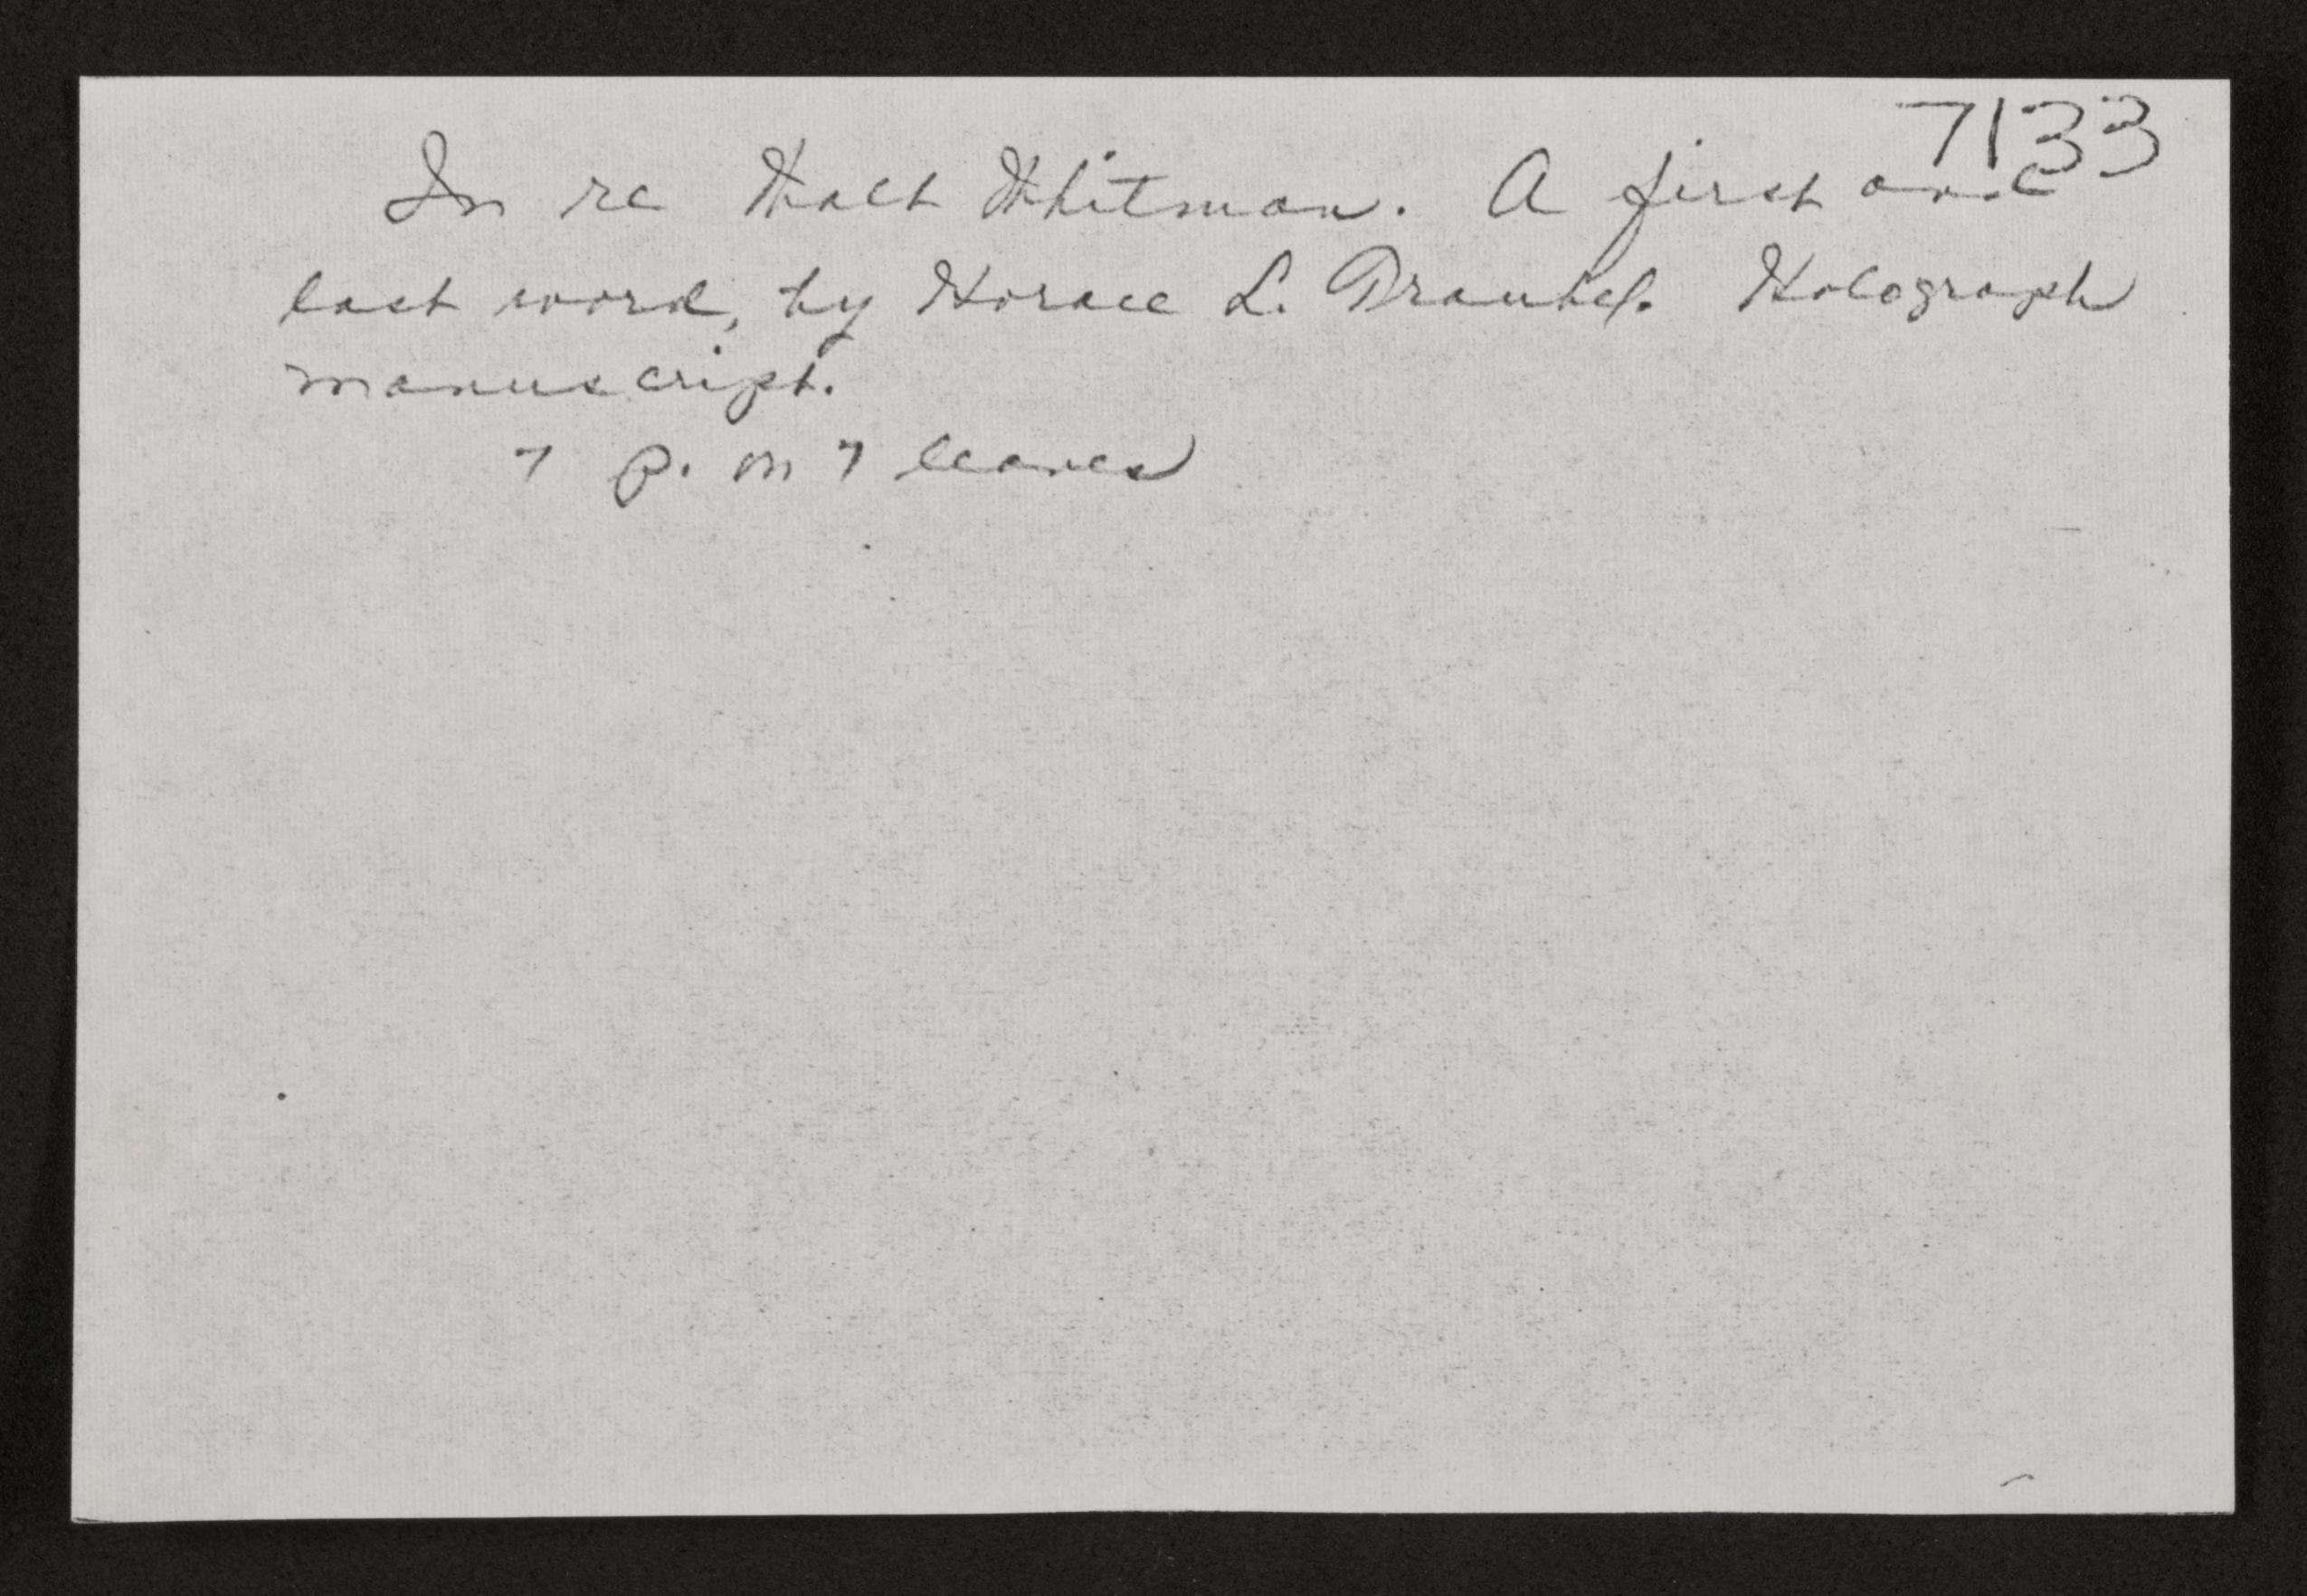 7133
In re Walt Whitman. A first and
last word, by Horace L. Traubel. Holograph
manuscript.
7 p. on 7 leaves